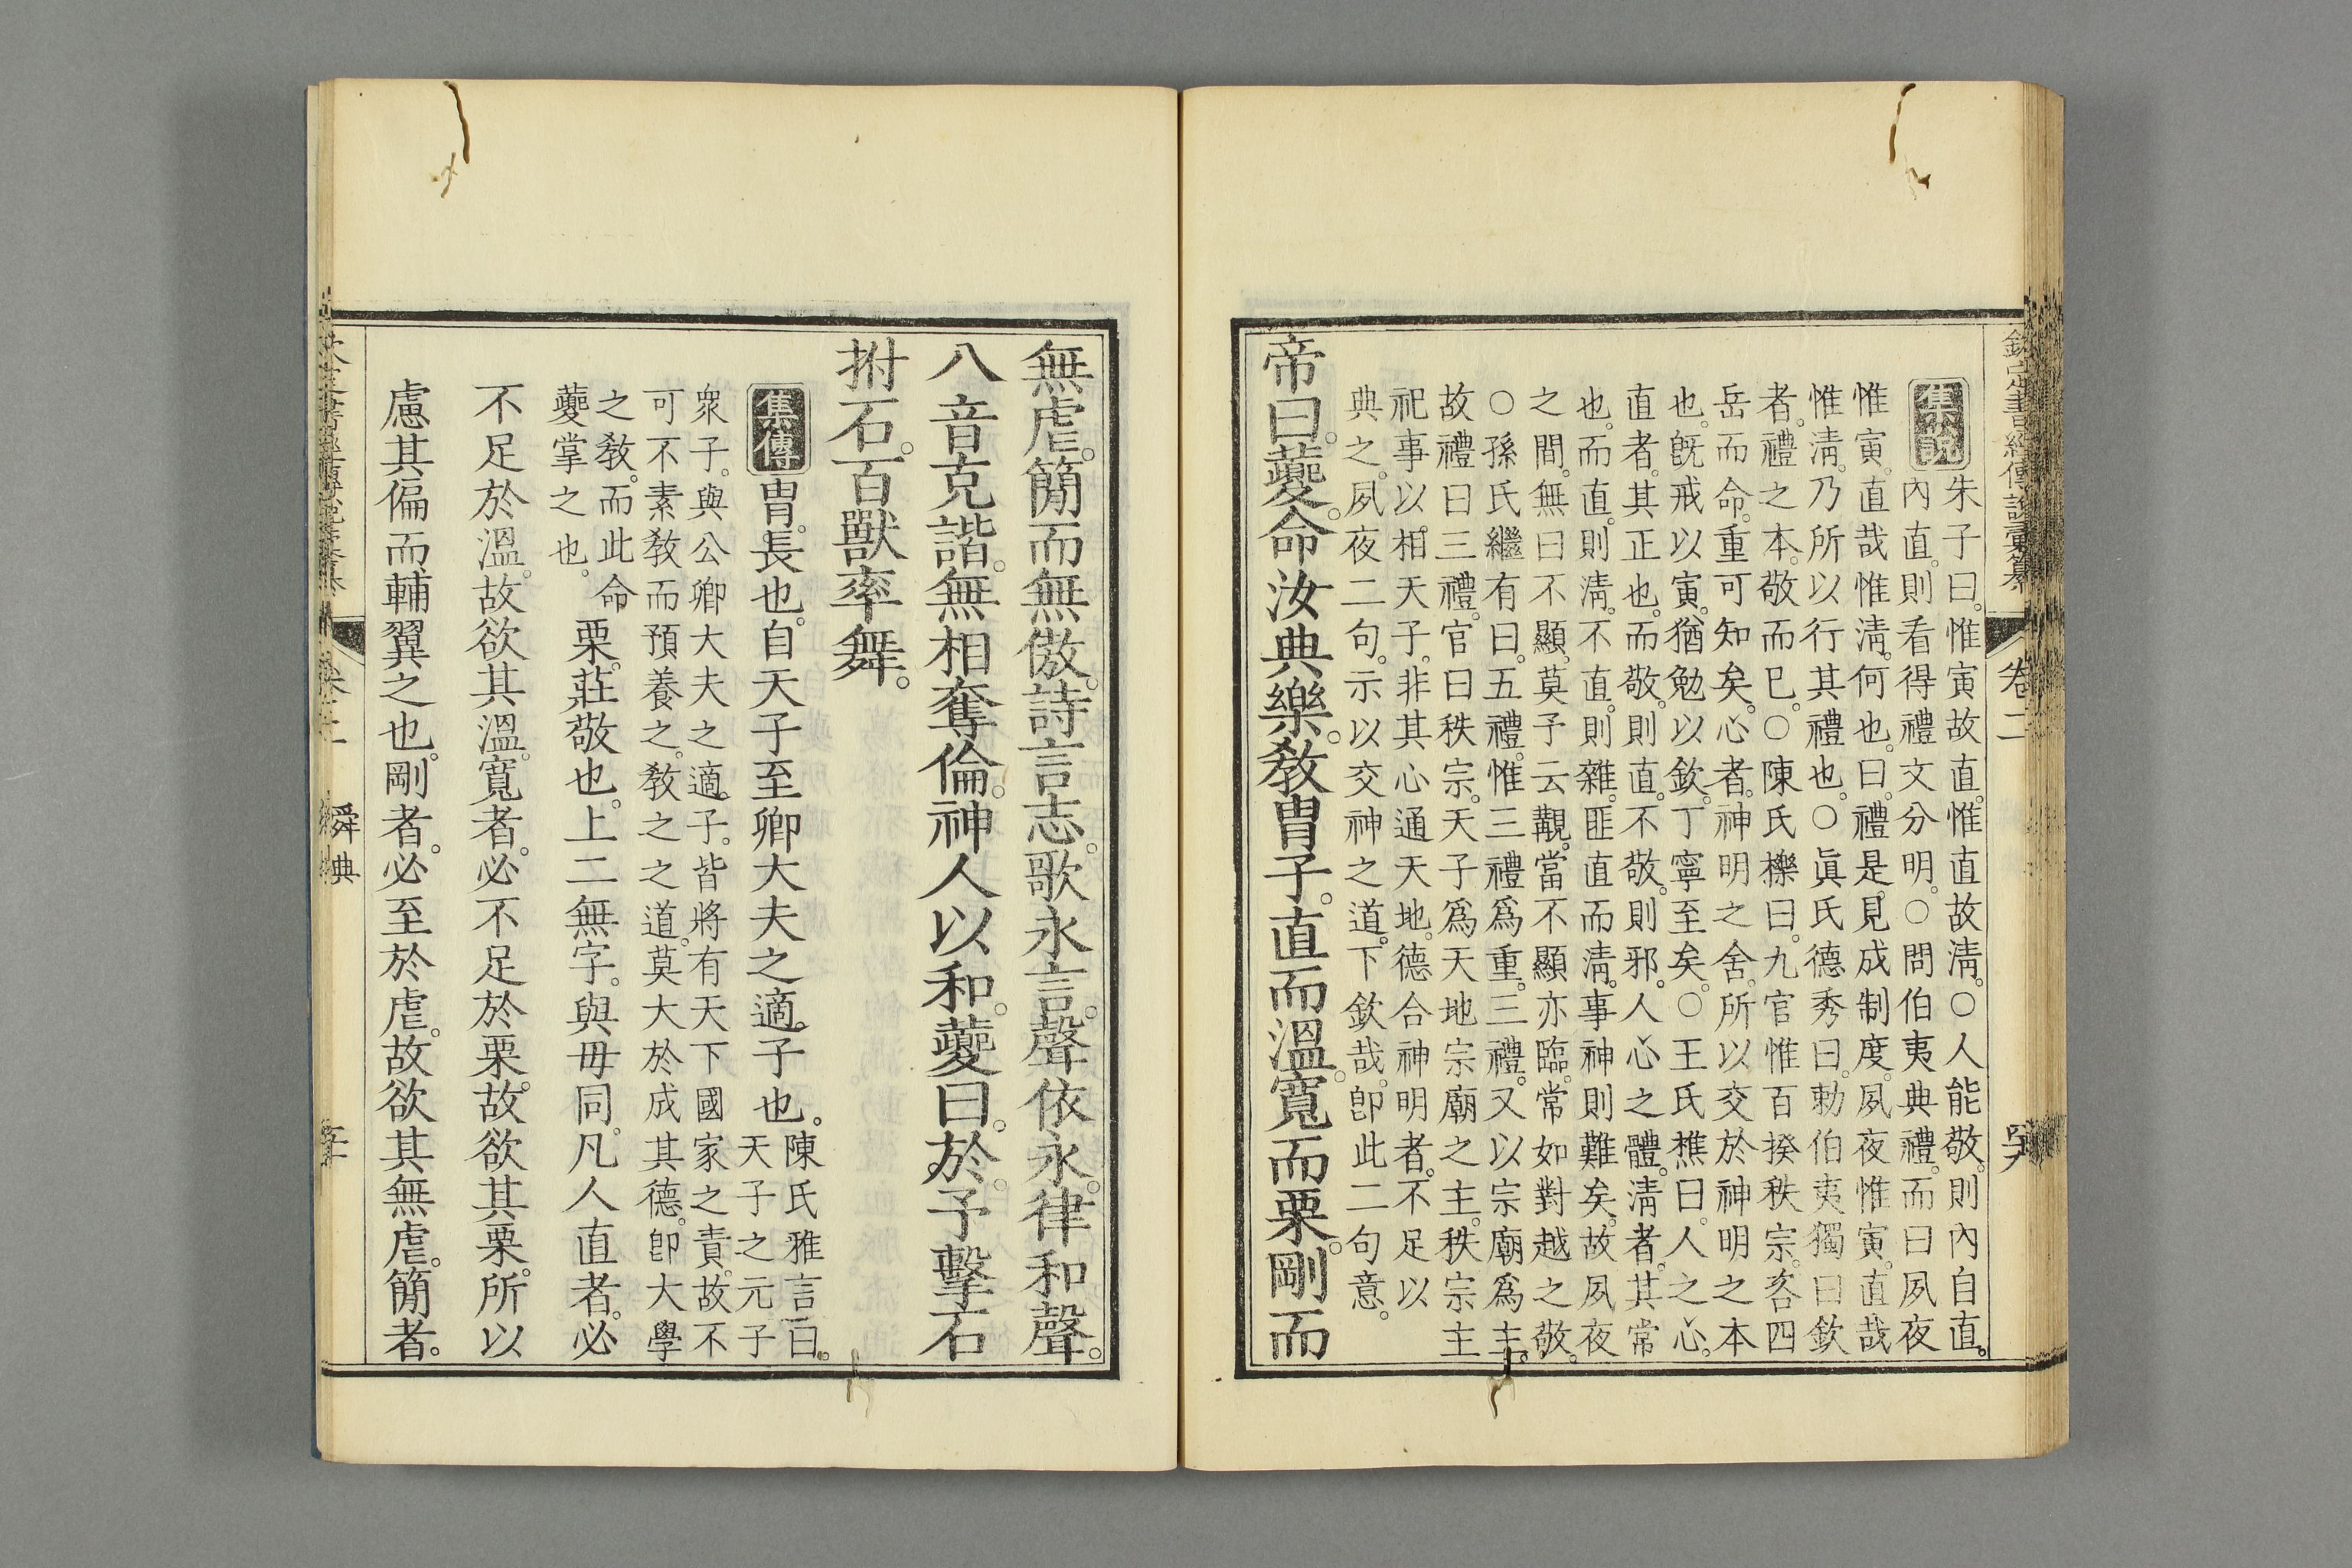 欽定書經傳說彙纂 卷二
集說
朱子曰。惟寅故直。惟直故淸。○人能敬。則內自直。
內直。則看得禮文分明。○問伯夷典禮。而曰夙夜
惟寅。直哉惟淸。何也。曰。禮是見成制度。夙夜惟寅。直哉
惟淸。乃所以行其禮也。○眞氏德秀曰。勅伯夷獨曰欽
者。禮之本。敬而已。○陳氏櫟曰。九官惟百揆秩宗。咨四
岳而命。重可知矣。心者。神明之舍。所以交於神明之本
也。旣戒以寅。猶勉以欽。丁寧至矣。○王氏樵曰。人之心。
直者。其正也。而敬。則直。不敬。則邪。人心之體。淸者。其常
也。而直。則淸。不直。則雜。匪直而淸。事神則難矣。故夙夜
之間。無曰不顯。莫予云觀。當不顯亦臨。常如對越之敬。
○孫氏繼有曰。五禮。惟三禮爲重。三禮。又以宗廟爲主。
故禮曰三禮。官曰秩宗。天子爲天地宗廟之主。秩宗主
祀事以相天子。非其心通天地。德合神明者。不足以
典之。夙夜二句。示以交神之道。下欽哉。卽此二句意。
帝曰。夔。命汝典樂。敎胄子。直而溫。寬而栗。剛而
無虐。簡而無傲。詩言志。歌永言。聲依永。律和聲。
八音克諧。無相奪倫。神人以和。夔曰。於。予擊石
拊石。百獸率舞。
集傳
胄。長也。自天子至卿大夫之適子也。陳氏雅言曰。
天子之元子
衆子。與公卿大夫之適子。皆將有天下國家之責。故不
可不素敎而預養之。敎之之道。莫大於成其德。卽大學
之敎。而此命
夔掌之也。
栗。莊敬也。上二無字。與毋同。凡人直者。必
不足於溫。故欲其溫。寬者。必不足於栗。故欲其栗。所以
慮其偏而輔翼之也。剛者。必至於虐。故欲其無虐。簡者。
舜典